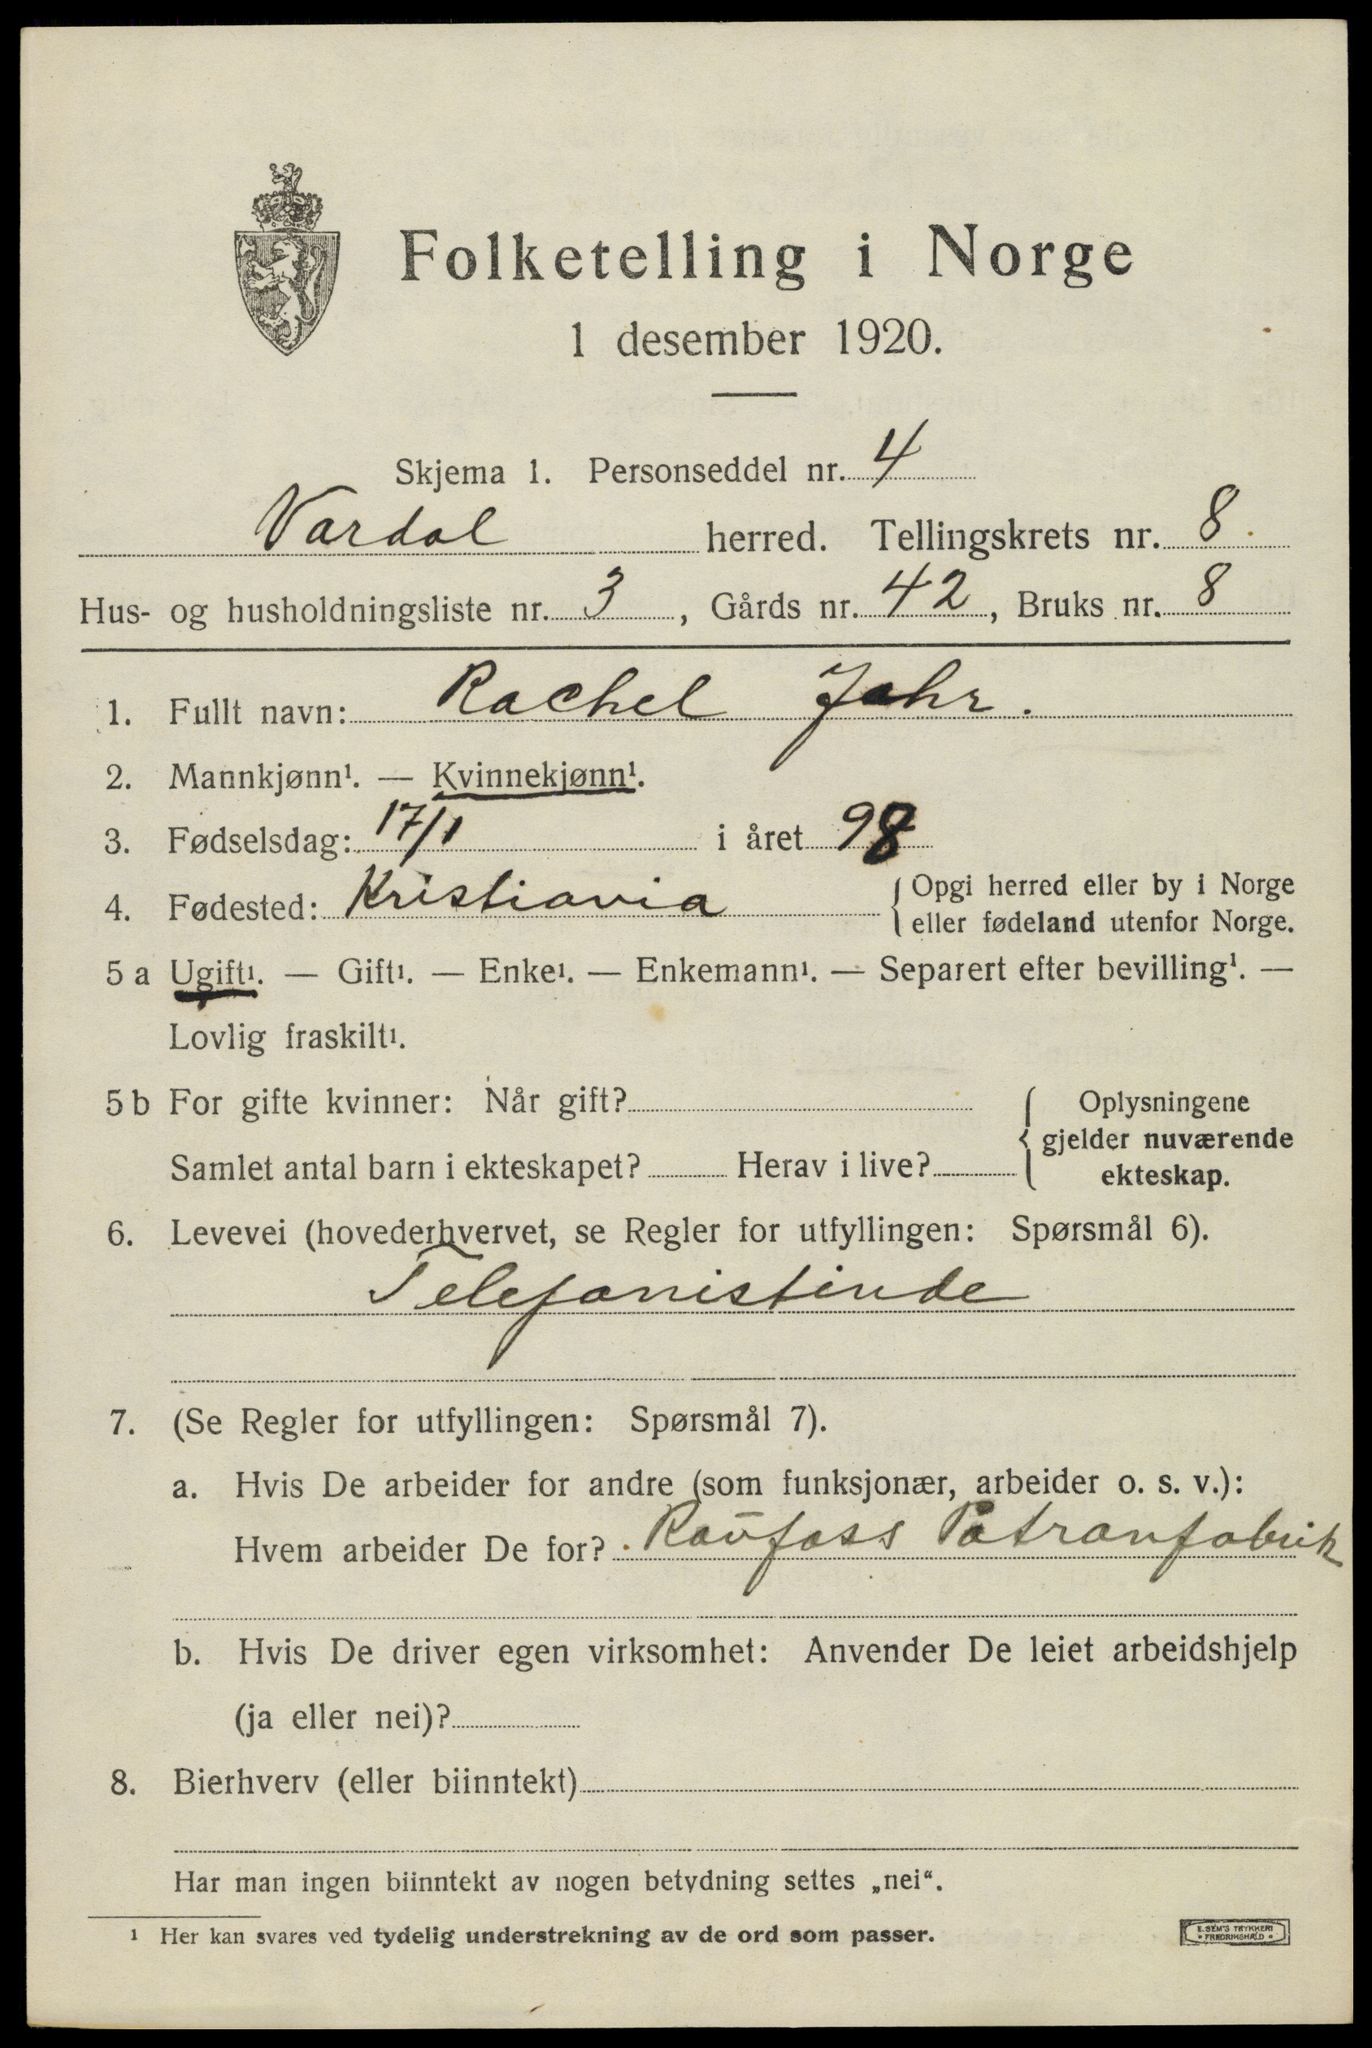 Folketelling i Norge
1 desember 1920.
Skjema 1. Personseddel nr. 4
Vardal herred. Tellingskrets nr. 8.
Hus- og husholdningsliste nr. 3, Gårds nr. 42, Bruks nr. 8
1. Fullt navn: Rachel Jahr.
2. Mannkjønn¹. — Kvinnekjønn¹.
3. Fødselsdag: 17/1 i året 98
4. Fødested: Kristiania { Opgi herred eller by i Norge
eller fødeland utenfor Norge.
5 a Ugift¹. — Gift¹. — Enke¹. — Enkemann¹. — Separert efter bevilling¹. —
Lovlig fraskilt¹.
5 b For gifte kvinner: Når gift? { Oplysningene
gjelder nuværende
Samlet antal barn i ekteskapet? Herav i live? ekteskap.
6. Levevei (hovederhvervet, se Regler for utfyllingen: Spørsmål 6).
Telefonistinde
7. (Se Regler for utfyllingen: Spørsmål 7).
a. Hvis De arbeider for andre (som funksjonær, arbeider o. s. v.):
Hvem arbeider De for? Raufoss Patronfabrik
b. Hvis De driver egen virksomhet: Anvender De leiet arbeidshjelp
(ja eller nei)?
8. Bierhverv (eller biinntekt)
Har man ingen biinntekt av nogen betydning settes „nei“.
¹ Her kan svares ved tydelig understrekning av de ord som passer.
E. SEM'S TRYKKERI
• FREDRIKSHALD •